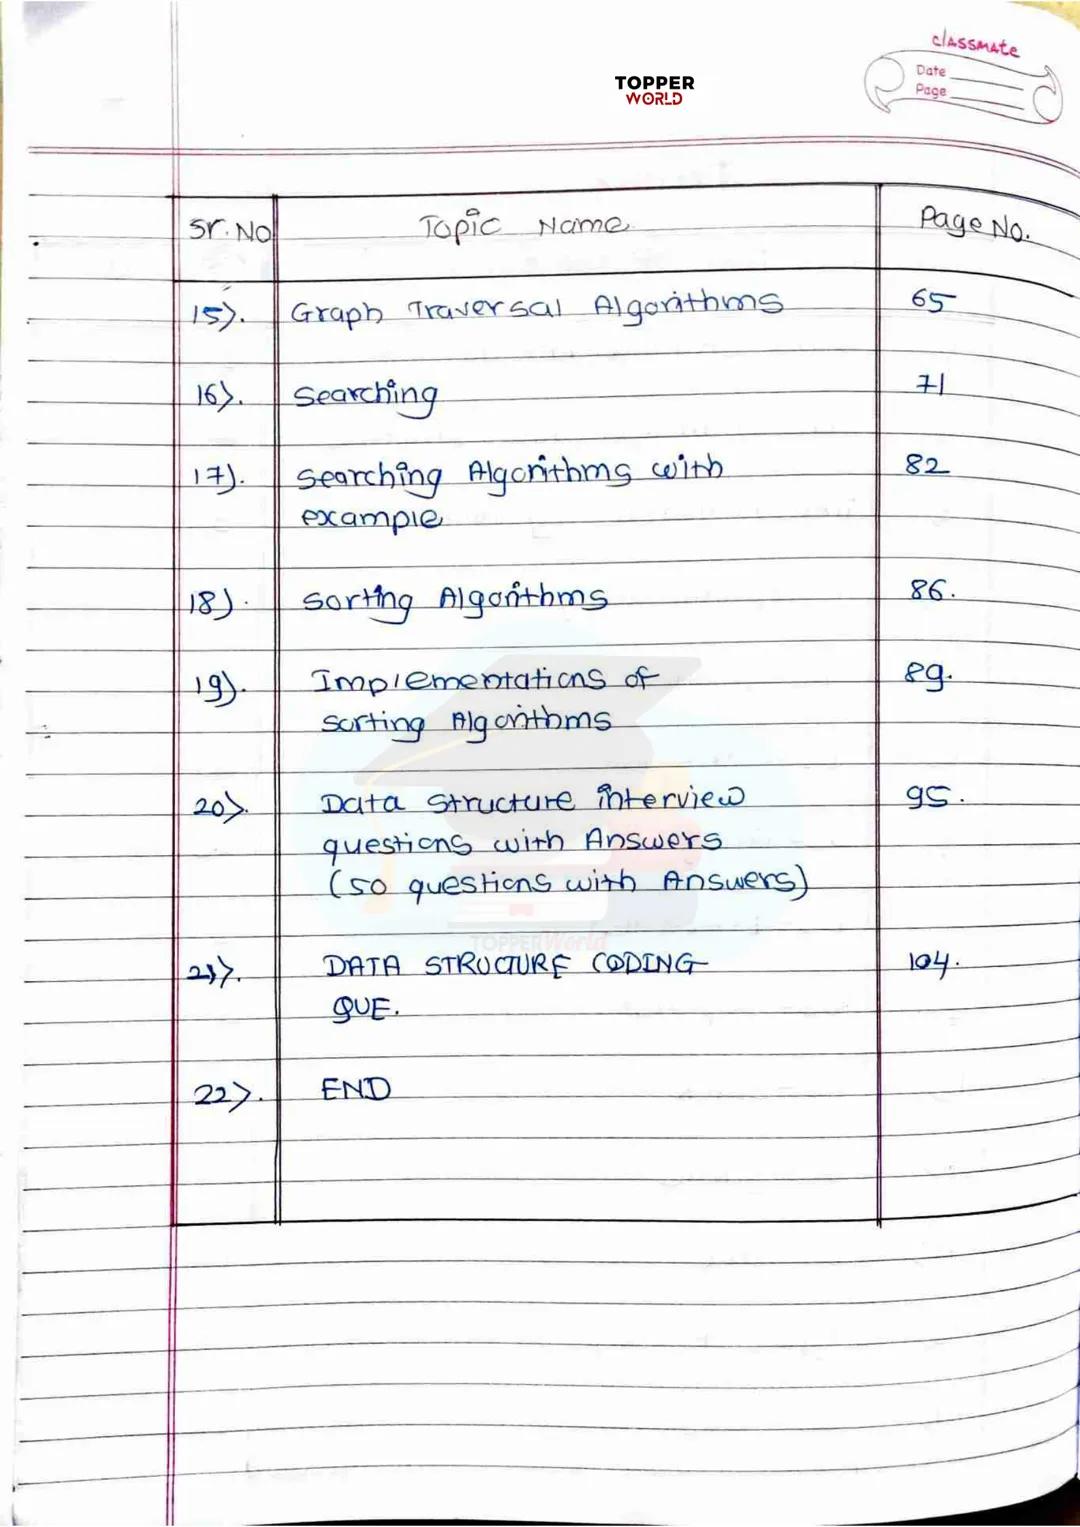 classmate
Date
Page
TOPPER
WORLD
Sr. No Topic Name Page No.
15). Graph Traversal Algorithms 65
16). Searching 71
17). Searching Algorithms with 82
example
18). Sorting Algorithms 86.
19). Implementations of 89.
sorting Algorithms
20). Data Structure interview 95.
questions with Answers
(50 questions with Answers)
TOPPERWorld
21). DATA STRUCTURE CODING 104.
QUE.
22). END